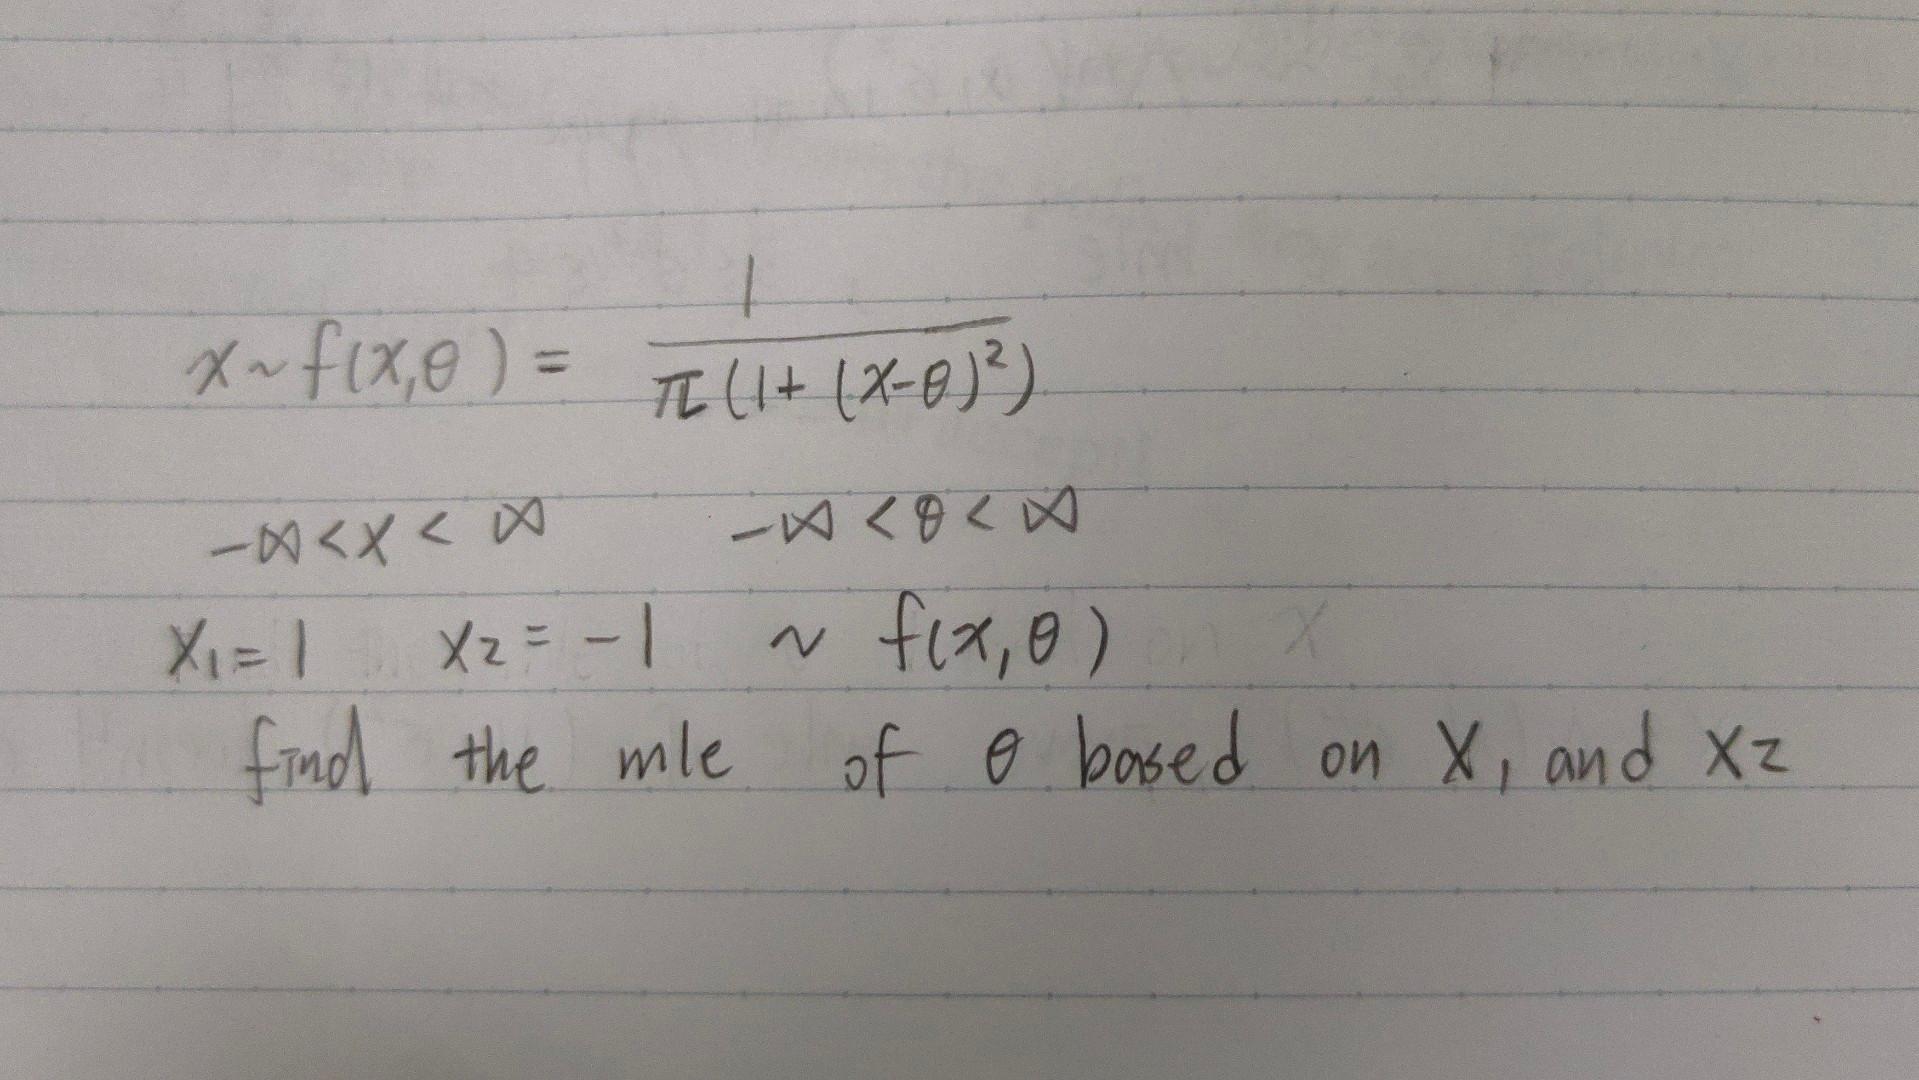 x ~ f(x,θ) = 1 / π(1+(x-θ)²)
-∞<x<∞ -∞<θ<∞
x₁=1 x₂=-1 ~ f(x,θ)
find the mle of θ based on x₁ and x₂